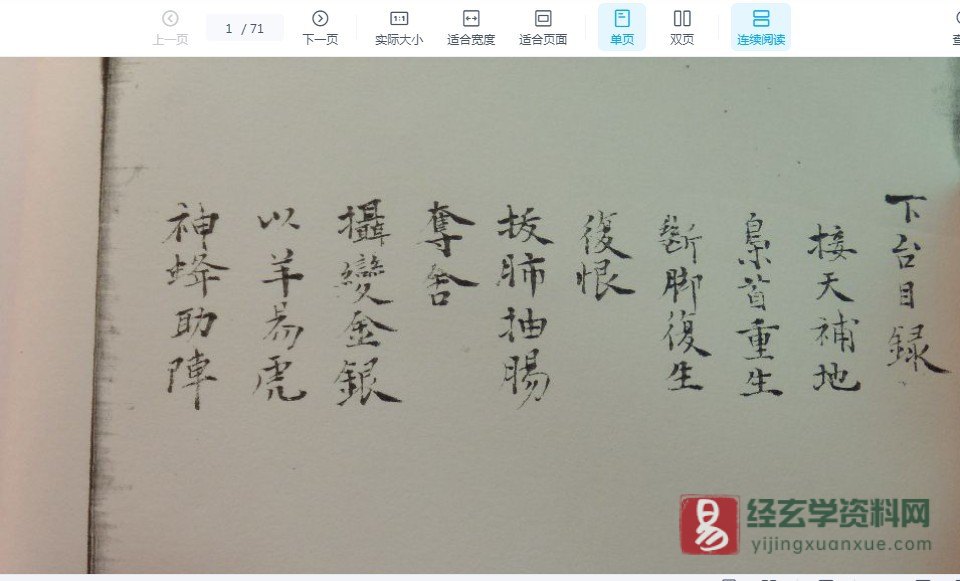 上一页
1 / 71
下一页
实际大小
适合宽度
适合页面
单页
双页
连续阅读
下台目録
接天補地
梟首重生
斷脚復生
復恨
拔肺抽腸
奪舍
攝變金銀
以羊易虎
神蜂助陣
易
经玄学资料网
yijingxuanxue.com